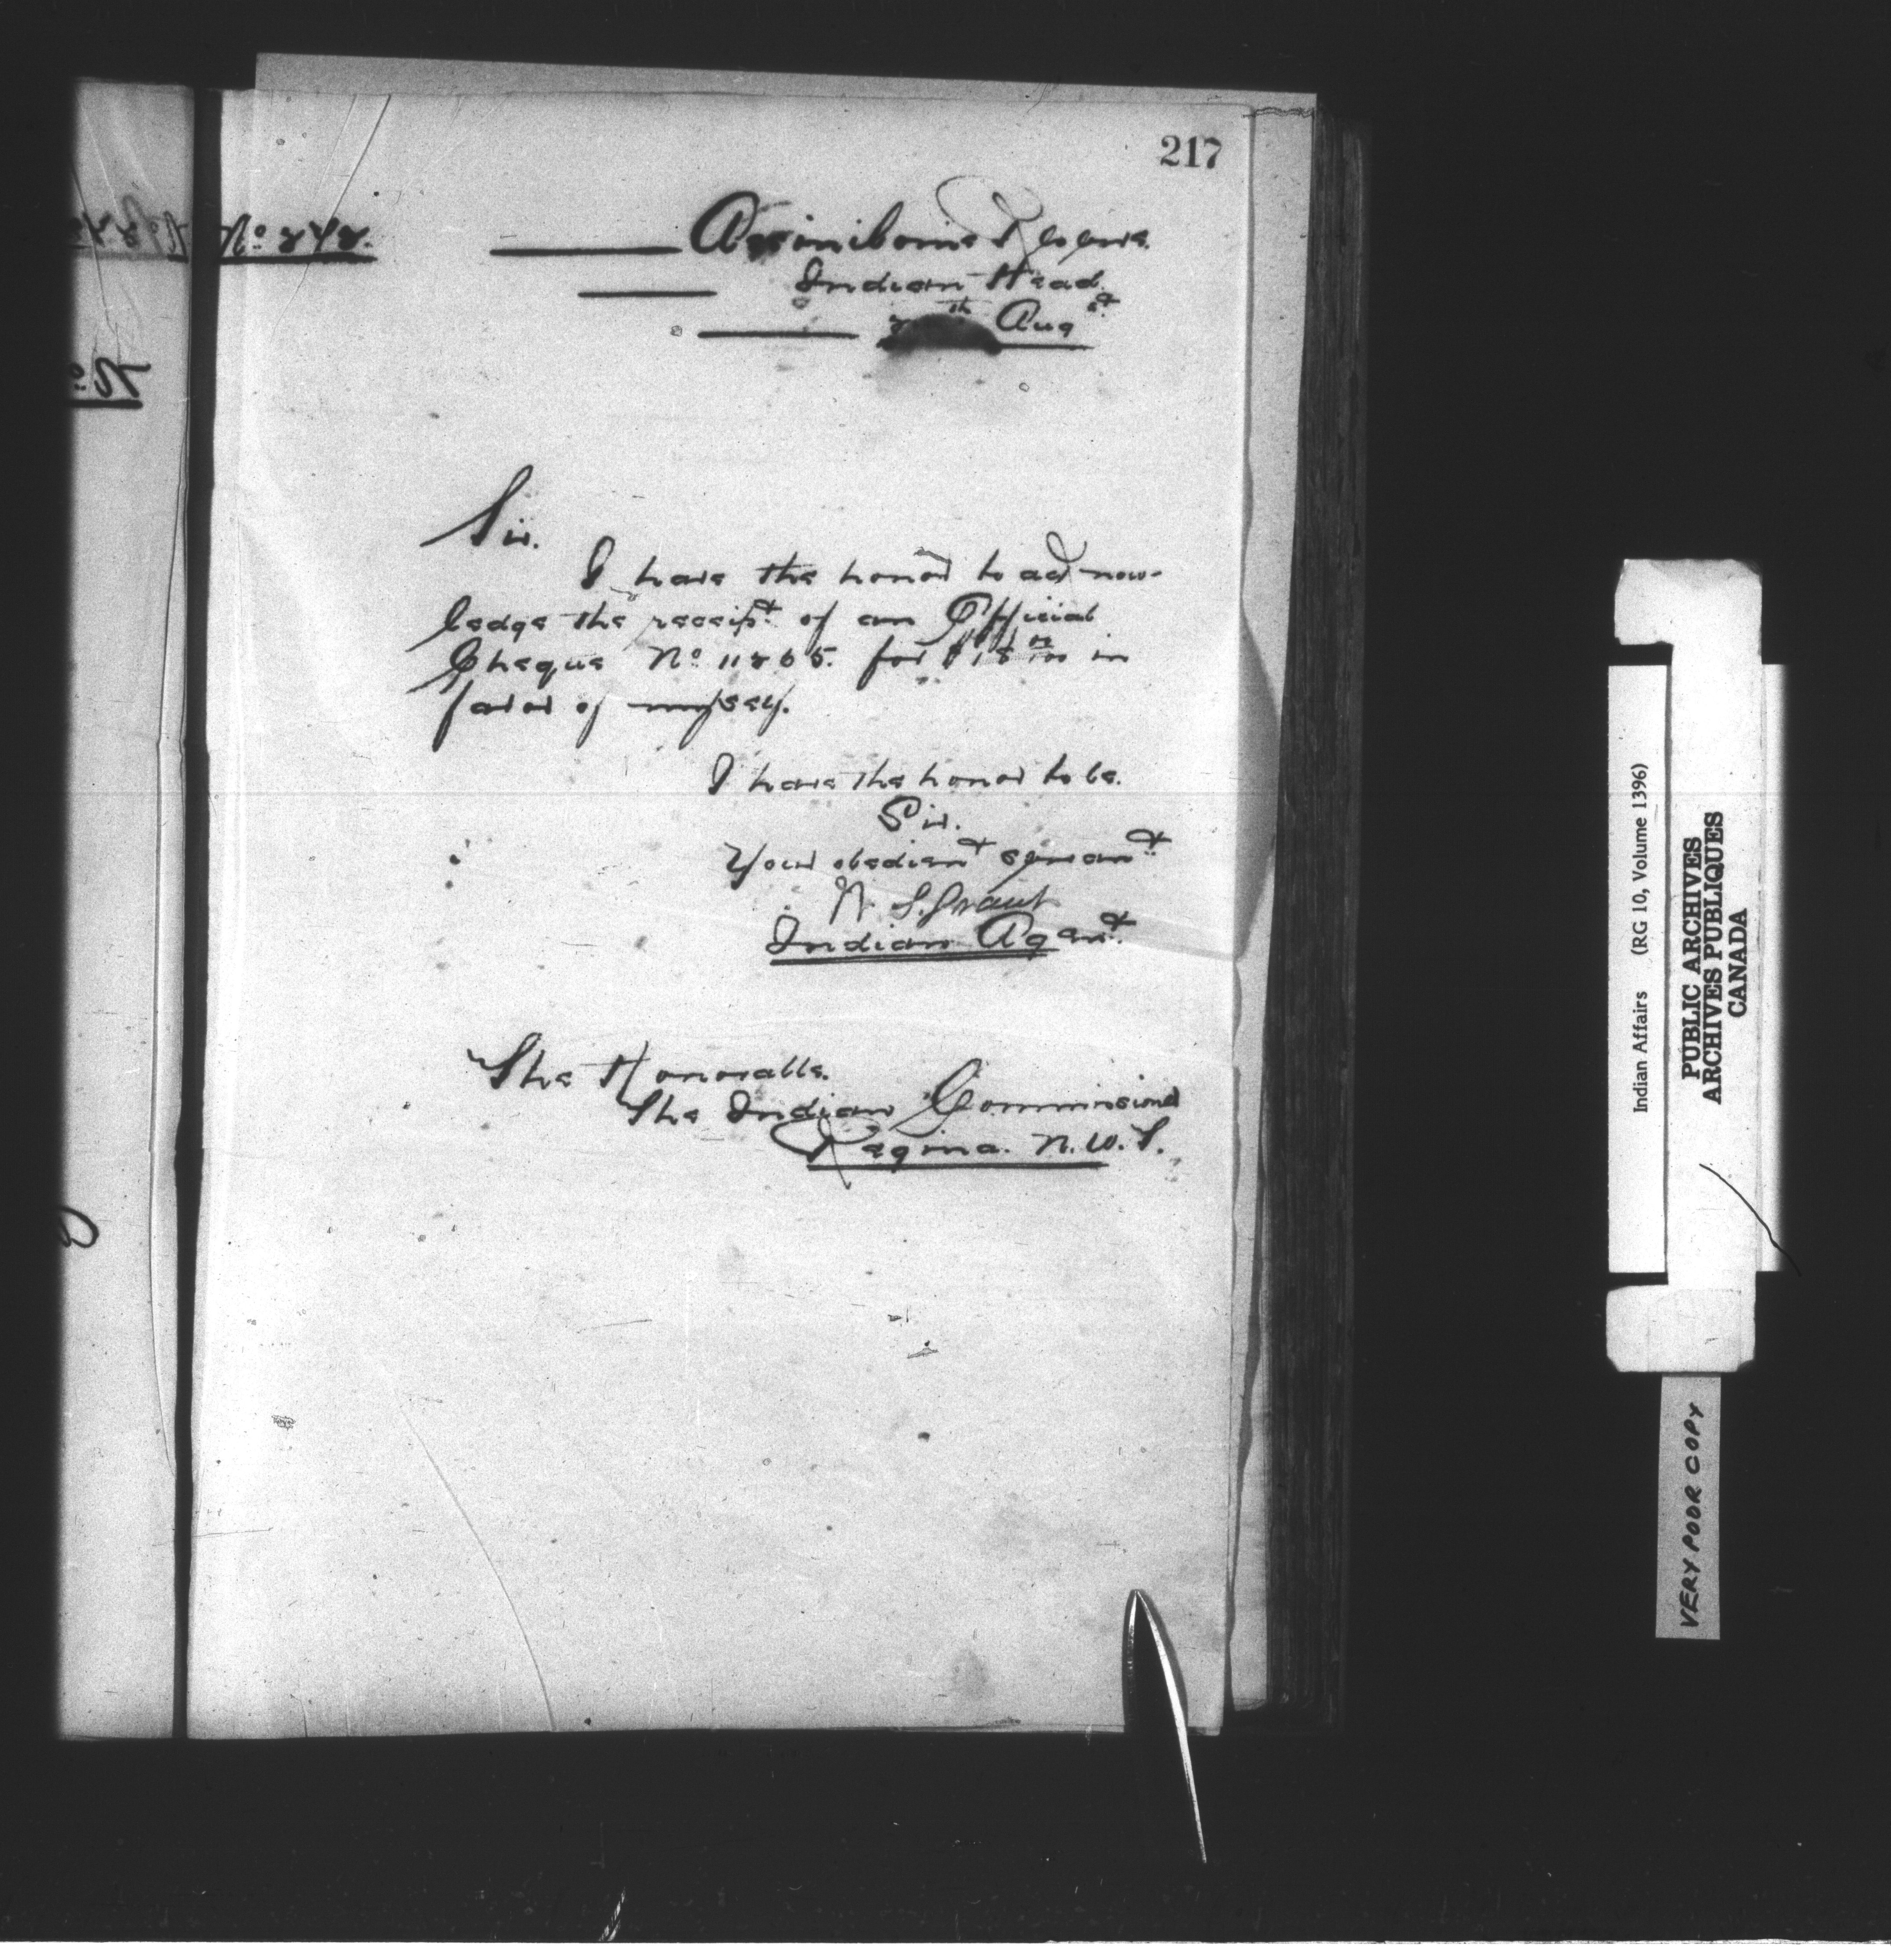 217
No 242.
Assiniboine Reserve.
Indian Head.
th Augst
Sir.
I have the honor to acknow-
ledge the receipt of an Official
Cheque No 11265. for $18 00/100 in
favor of myself.
I have the honor to be.
Sir.
Your obedient servant
W. S. Grant
Indian Agent.
The Honorable.
The Indian Commissioner
Regina. N.W.T.
Indian Affairs (RG 10, Volume 1396)
PUBLIC ARCHIVES
ARCHIVES PUBLIQUES
CANADA
VERY POOR COPY